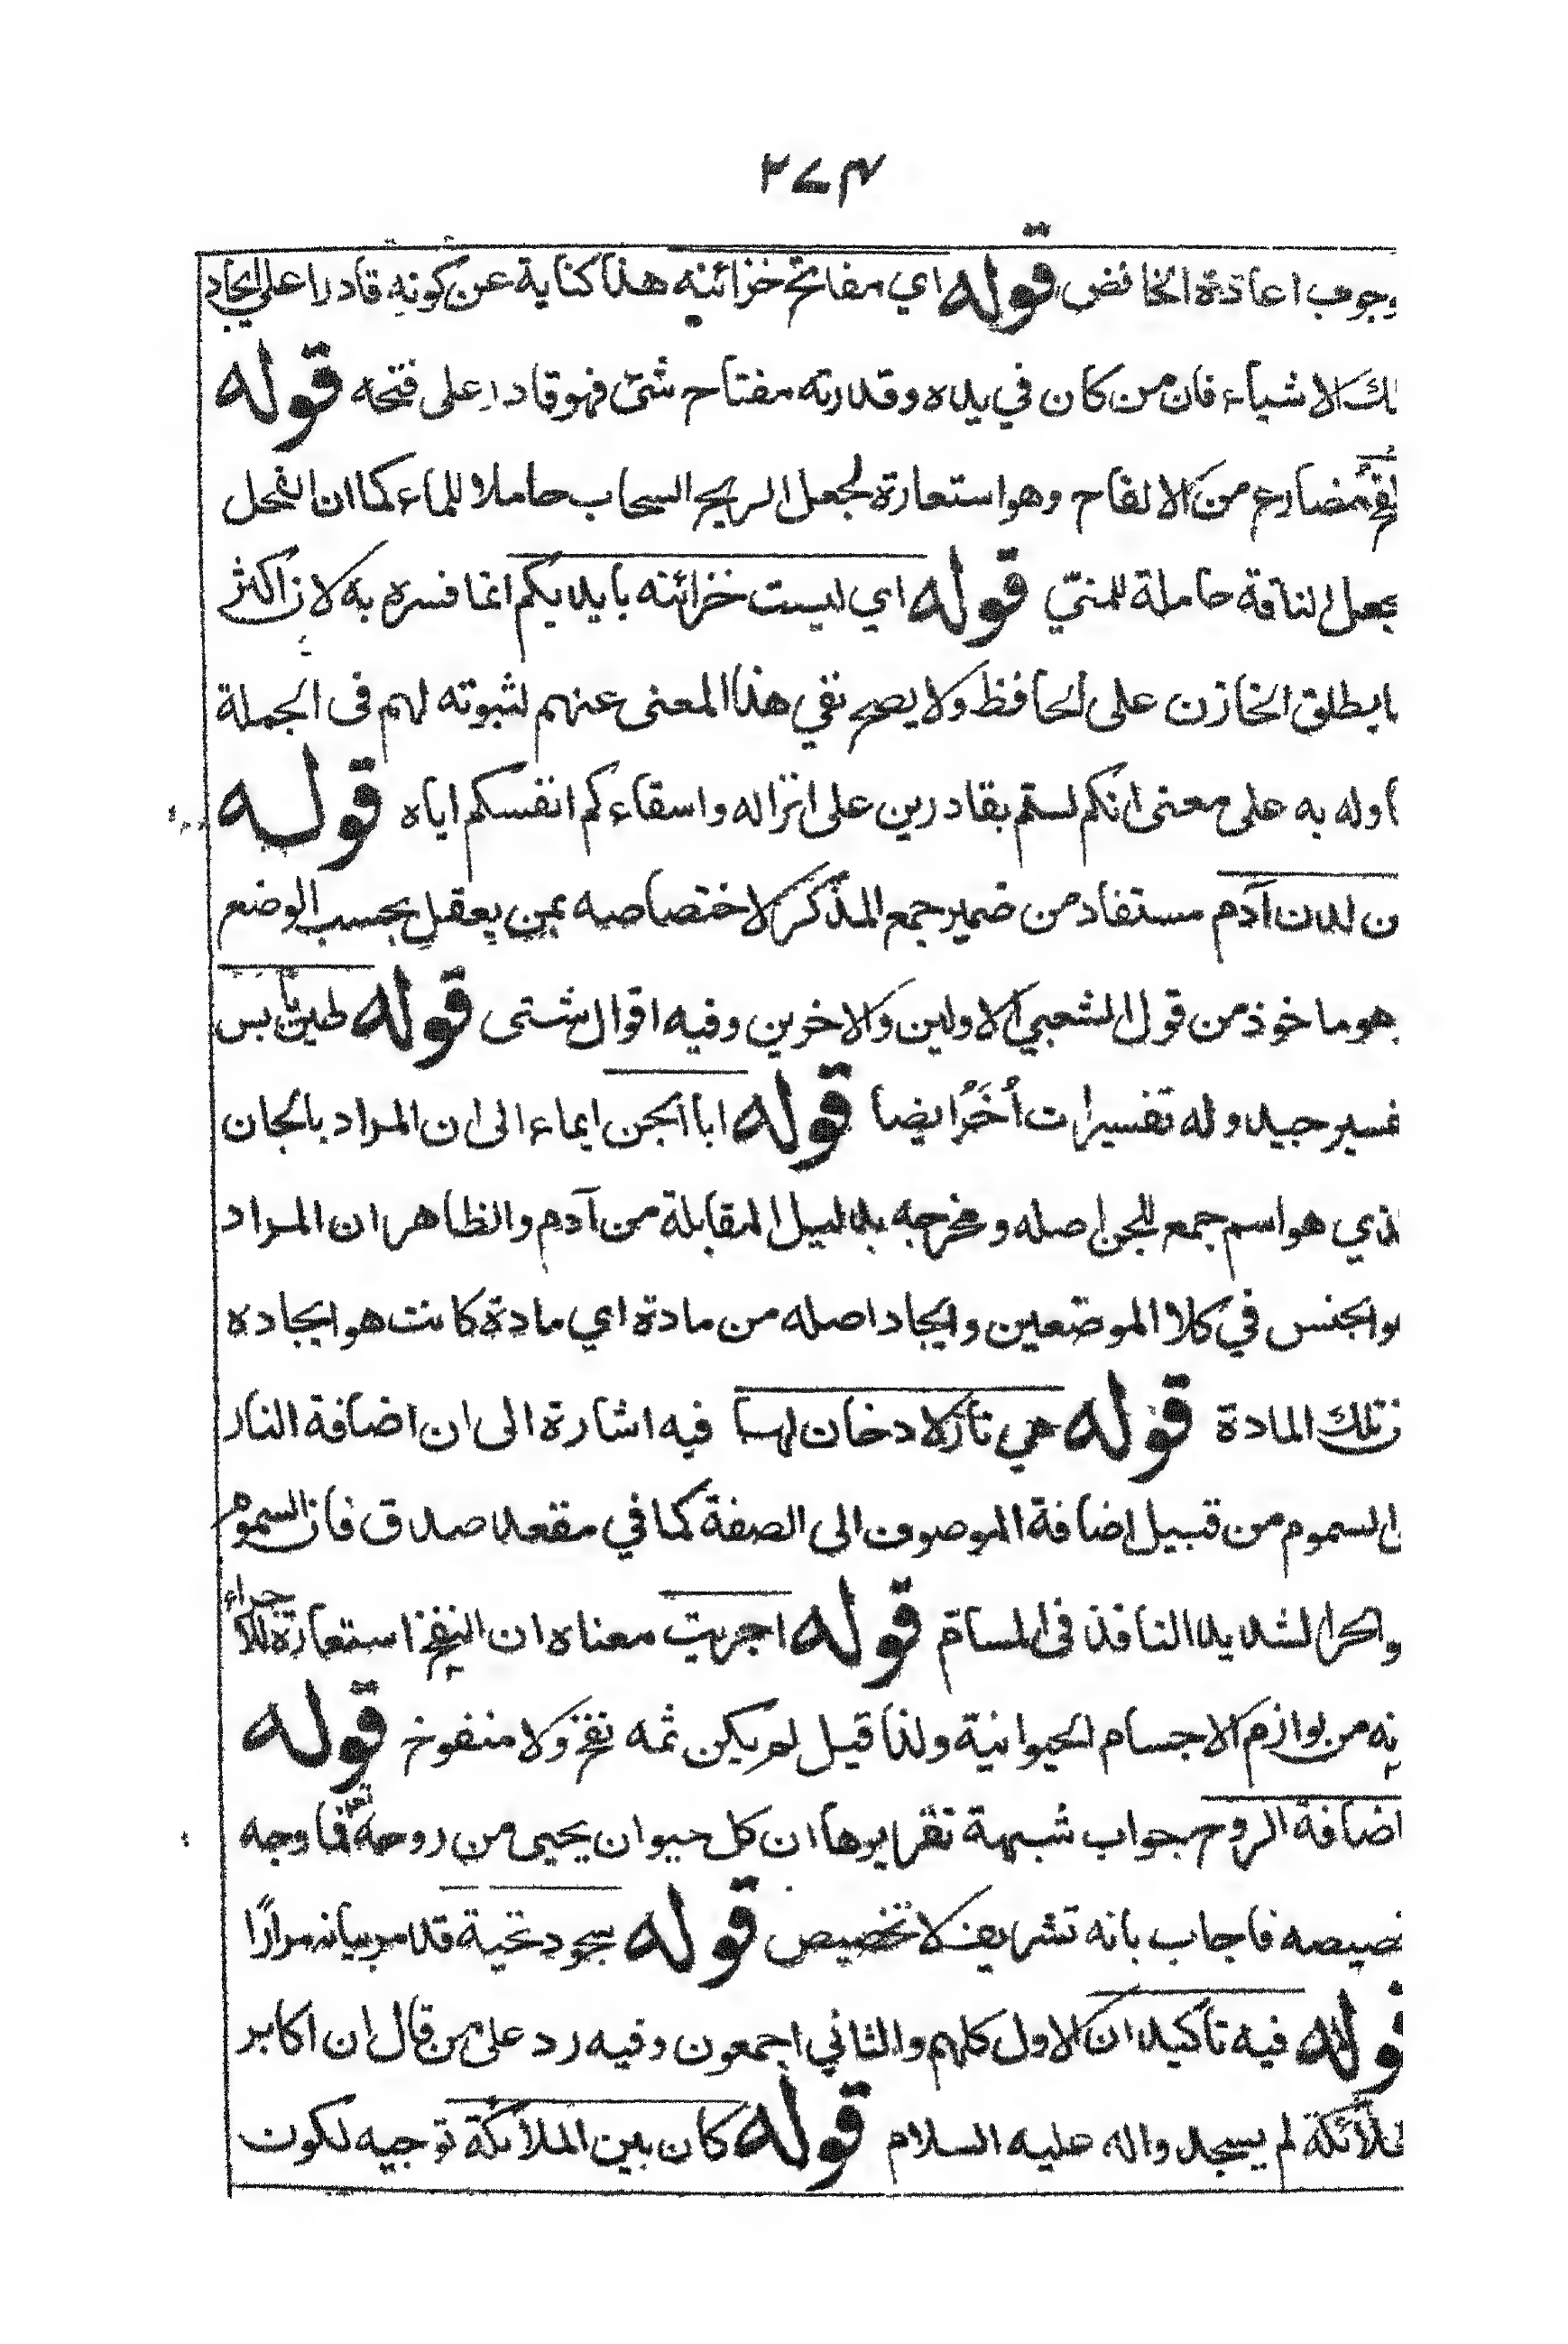 ٢٧٤
وجوب اعادة الخافض قوله اي مفاتح خزائنه هذا كناية عن كونه قادرا على ايجاد
لك الاشياء فان من كان في يده وقدرته مفتاح شئ فهو قادر على فتحه قوله
لقح مضارع من الالقاح وهو استعارة لجعل الريح السحاب حاملا للماء كما ان الفحل
يجعل الناقة حاملة للمني قوله اي ليست خزائنه بايديكم انما فسره به لان اكثر
ما يطلق الخازن على الحافظ ولا يصح نفي هذا المعنى عنهم لثبوته لهم فى الجملة
اوله به على معنى انكم لستم بقادرين على انزاله واسقاءكم انفسكم اياه قوله
ن لدن آدم مستفاد من ضمير جمع المذكر لاختصاصه بمن يعقل بحسب الوضع
هو ماخوذ من قول الشعبي الاولين والاخرين وفيه اقوال شتى قوله طين يابس
فسير جيد وله تفسيرات أُخَرُ ايضا قوله ابا الجن ايماء الى ان المراد بالجان
لذي هو اسم جمع للجن اصله ومخرجه بدليل المقابلة من آدم والظاهر ان المراد
هو الجنس في كلا الموضعين وايجاد اصله من مادة اي مادة كانت هو ايجاده
ن تلك المادة قوله هي نار لا دخان لها فيه اشارة الى ان اضافة النار
لى السموم من قبيل اضافة الموصوف الى الصفة كما في مقعد صدق فان السموم
والحر الشديد النافذ فى المسام قوله اجريت معناه ان النفخ استعارة للاجراء
نه من لوازم الاجسام الحيوانية ولذا قيل لم يكن ثمه نفخ ولا منفوخ قوله
اضافة الروح جواب شبهة تقريرها ان كل حيوان يحيى من روحه تعالى فما وجه
خصيصه فاجاب بانه تشريف لا تخصيص قوله سجود تحية قد مر بيانه مرارًا
قوله فيه تأكيدان الاول كلهم والثاني اجمعون وفيه رد على من قال ان اكابر
لملآئكة لم يسجدوا له عليه السلام قوله كان بين الملائكة توجيه لكون